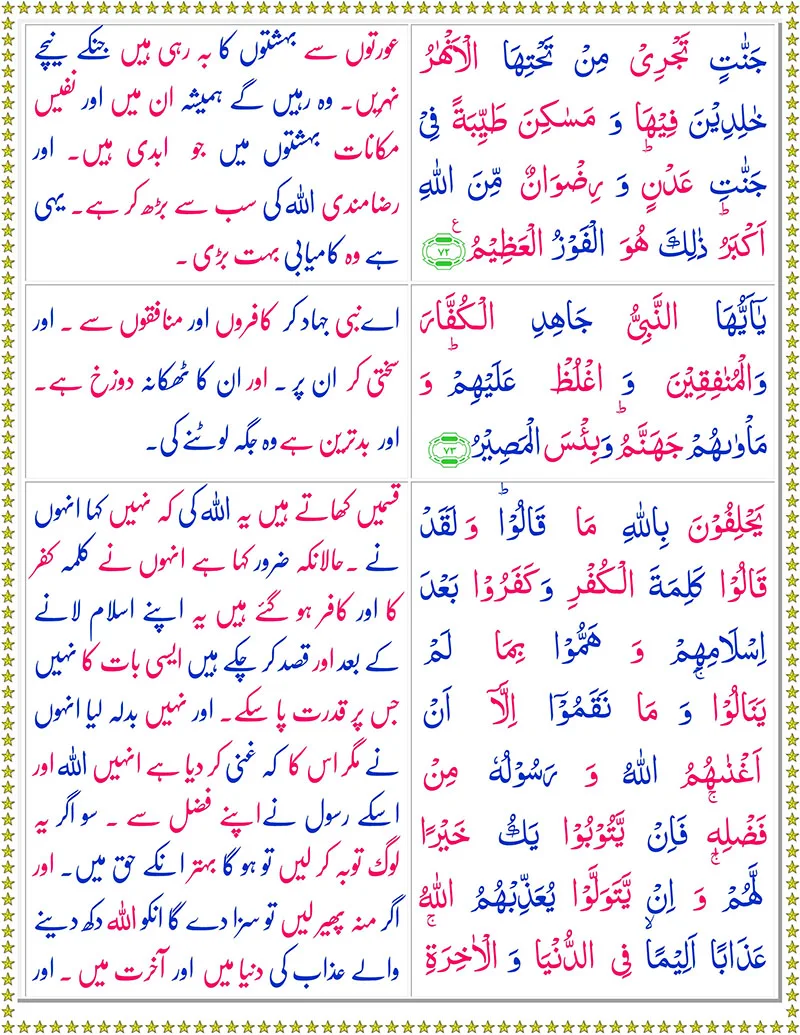 جَنّٰتٍ تَجْرِیْ مِنْ تَحْتِهَا الْاَنْهٰرُ
خٰلِدِیْنَ فِیْهَا وَ مَسٰكِنَ طَیِّبَةً فِیْ
جَنّٰتِ عَدْنٍ ؕ وَ رِضْوَانٌ مِّنَ اللّٰهِ
اَكْبَرُ ؕ ذٰلِكَ هُوَ الْفَوْزُ الْعَظِیْمُ ۧ ﴿۷۲﴾
عورتوں سے بہشتوں کا بہ رہی ہیں جنکے نیچے
نہریں۔ وہ رہیں گے ہمیشہ ان میں اور نفیس
مکانات بہشتوں میں جو ابدی ہیں۔ اور
رضامندی اللہ کی سب سے بڑھ کر ہے۔ یہی
ہے وہ کامیابی بہت بڑی۔
یٰۤاَیُّهَا النَّبِیُّ جَاهِدِ الْكُفَّارَ
وَالْمُنٰفِقِیْنَ وَ اغْلُظْ عَلَیْهِمْ ؕ وَ
مَاْوٰىهُمْ جَهَنَّمُ ؕ وَبِئْسَ الْمَصِیْرُ ﴿۷۳﴾
اے نبی جہاد کر کافروں اور منافقوں سے۔ اور
سختی کر ان پر۔ اور ان کا ٹھکانہ دوزخ ہے۔
اور بدترین ہے وہ جگہ لوٹنے کی۔
یَحْلِفُوْنَ بِاللّٰهِ مَا قَالُوْا ؕ وَ لَقَدْ
قَالُوْا كَلِمَةَ الْكُفْرِ وَ كَفَرُوْا بَعْدَ
اِسْلَامِهِمْ وَ هَمُّوْا بِمَا لَمْ
یَنَالُوْا ۚ وَ مَا نَقَمُوْۤا اِلَّاۤ اَنْ
اَغْنٰىهُمُ اللّٰهُ وَ رَسُوْلُهٗ مِنْ
فَضْلِهٖ ۚ فَاِنْ یَّتُوْبُوْا یَكُ خَیْرًا
لَّهُمْ ۚ وَ اِنْ یَّتَوَلَّوْا یُعَذِّبْهُمُ اللّٰهُ
عَذَابًا اَلِیْمًا ۙ فِی الدُّنْیَا وَ الْاٰخِرَةِ ۚ
قسمیں کھاتے ہیں یہ اللہ کی کہ نہیں کہا انہوں
نے۔ حالانکہ ضرور کہا ہے انہوں نے کلمہ کفر
کا اور کافر ہو گئے ہیں یہ اپنے اسلام لانے
کے بعد اور قصد کر چکے ہیں ایسی بات کا نہیں
جس پر قدرت پا سکے۔ اور نہیں بدلہ لیا انہوں
نے مگر اس کا کہ غنی کر دیا ہے انہیں اللہ اور
اسکے رسول نے اپنے فضل سے۔ سو اگر یہ
لوگ توبہ کر لیں تو ہو گا بہتر انکے حق میں۔ اور
اگر منہ پھیر لیں تو سزا دے گا انکو اللہ دکھ دینے
والے عذاب کی دنیا میں اور آخرت میں۔ اور